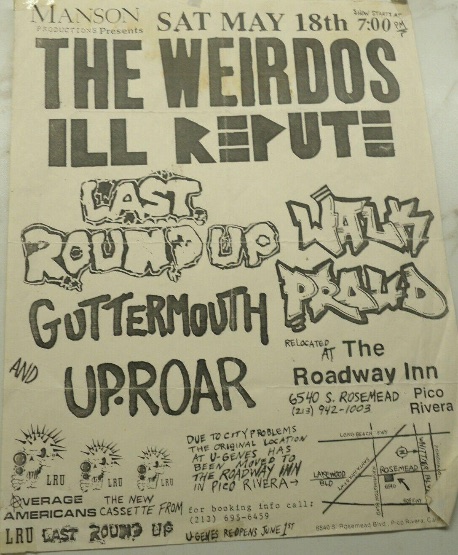 MANSON
PRODUCTIONS Presents
SAT MAY 18th 7:00 PM
SHOW STARTS AT
THE WEIRDOS
ILL REPUTE
LAST
ROUND UP
WALK
PROUD
GUTTERMOUTH
AND UP-ROAR
RELOCATED AT The
Roadway Inn
6540 S. ROSEMEAD Pico
(213) 942-1003 Rivera
DUE TO CITY PROBLEMS
THE ORIGINAL LOCATION
AT U-GENES HAS
BEEN MOVED TO
THE ROADWAY INN
IN PICO RIVERA→
LRU LRU LRU
AVERAGE THE NEW
AMERICANS CASSETTE FROM
LRU LAST ROUND UP
for booking info call:
(213) 695-6459
U-GENES REOPENS JUNE 1ST
LONG BEACH FWY
LAKEWOOD
BLVD
ROSEMEAD
6540 S. Rosemead Blvd. Pico Rivera,